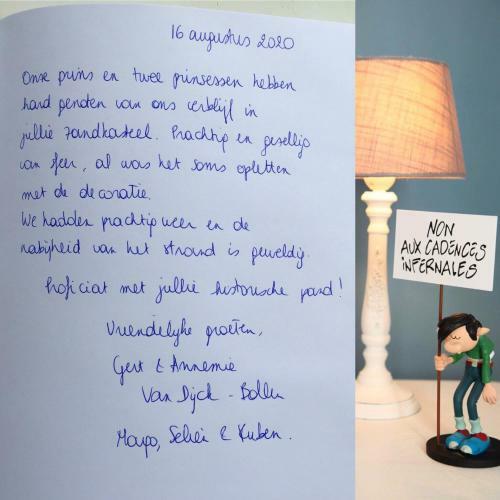 16 augustus 2020
Onze prins en twee prinsessen hebben
hard genoten van ons verblijf in
jullie zandkasteel. Prachtig en gezellig
van sfeer, al was het soms opletten
met de decoratie.
We hadden prachtig weer en de
nabijheid van het strand is geweldig.
Proficiat met jullie historische pand!
Vriendelijke groeten,
Gert & Annemie
Van Dijck -
& Ruben.
NON
AUX CADENCES
INFERNALES